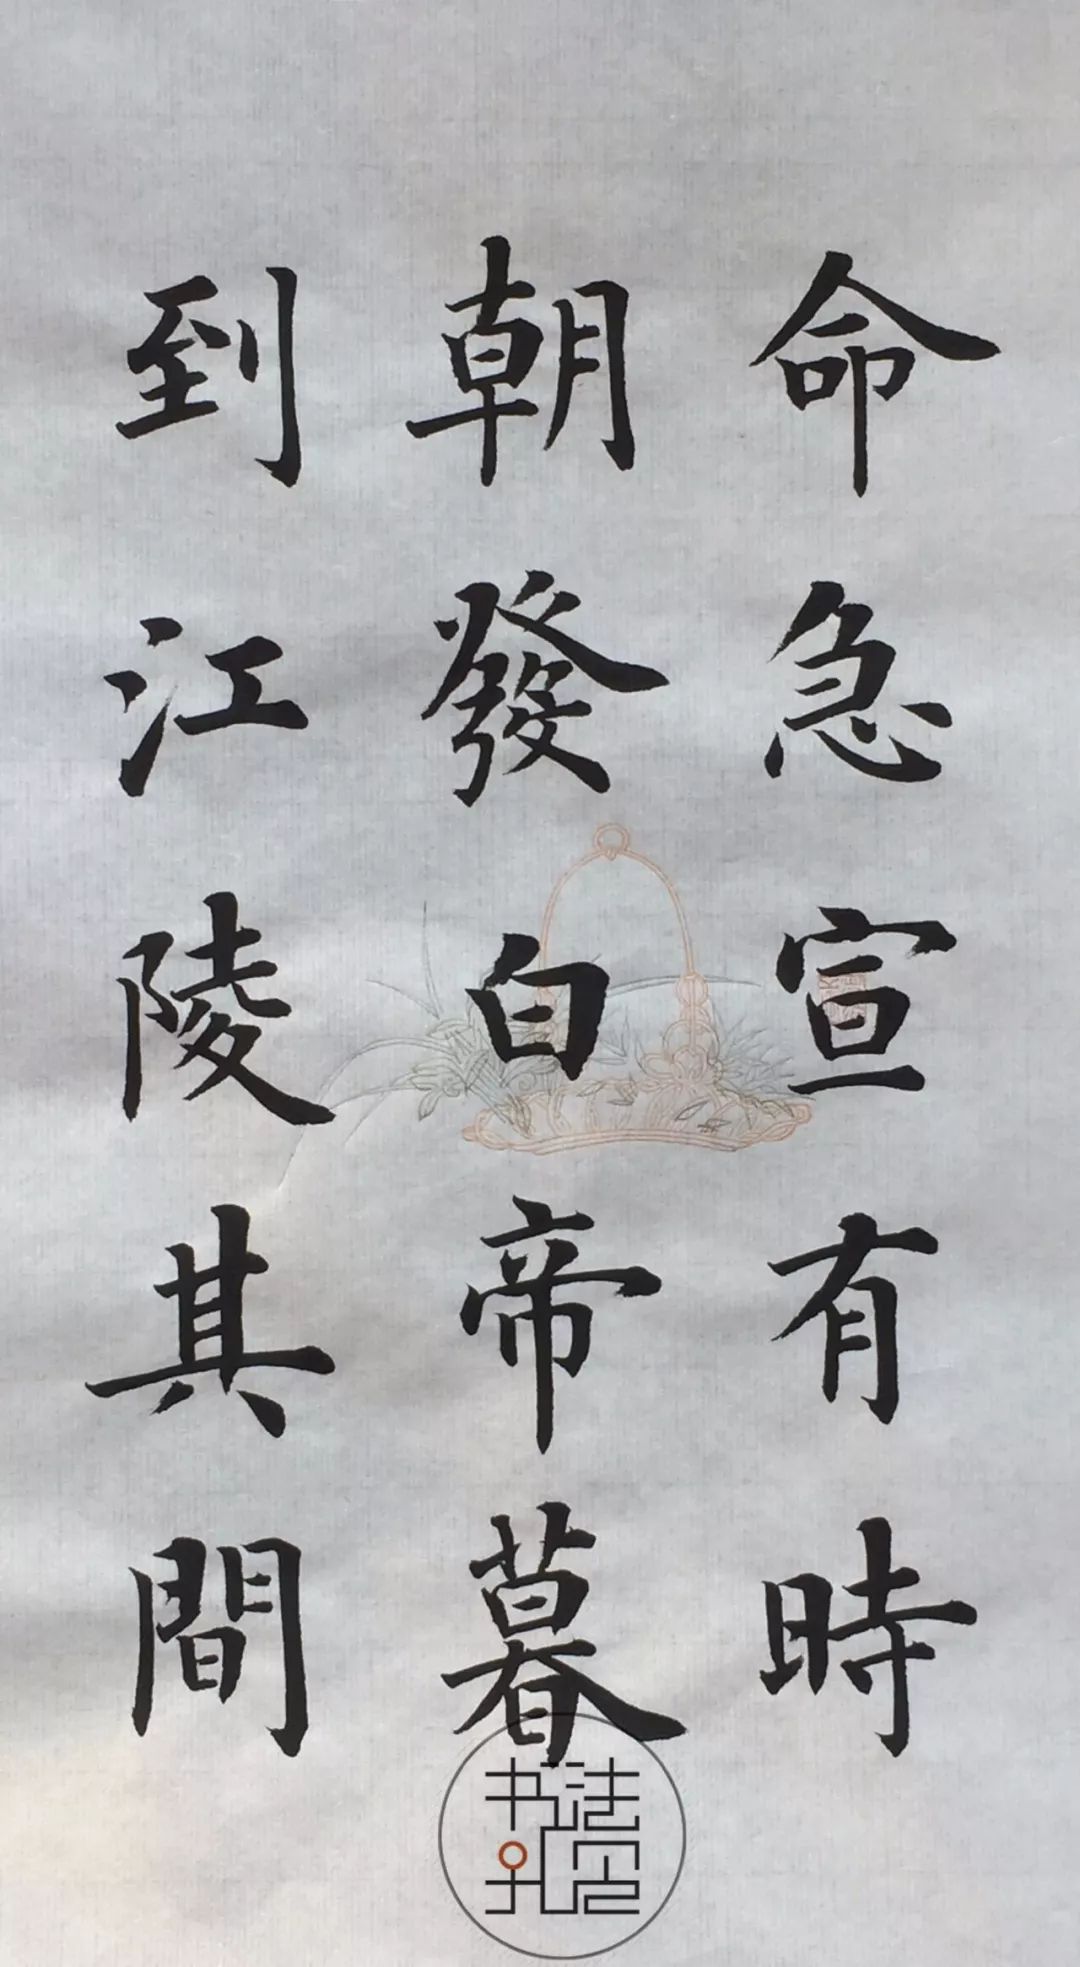 命急宣有時
朝發白帝暮
到江陵其間
书法